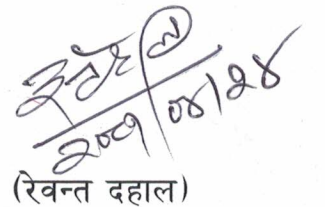 २०८१/०४/२४
(रेवन्त दहाल)